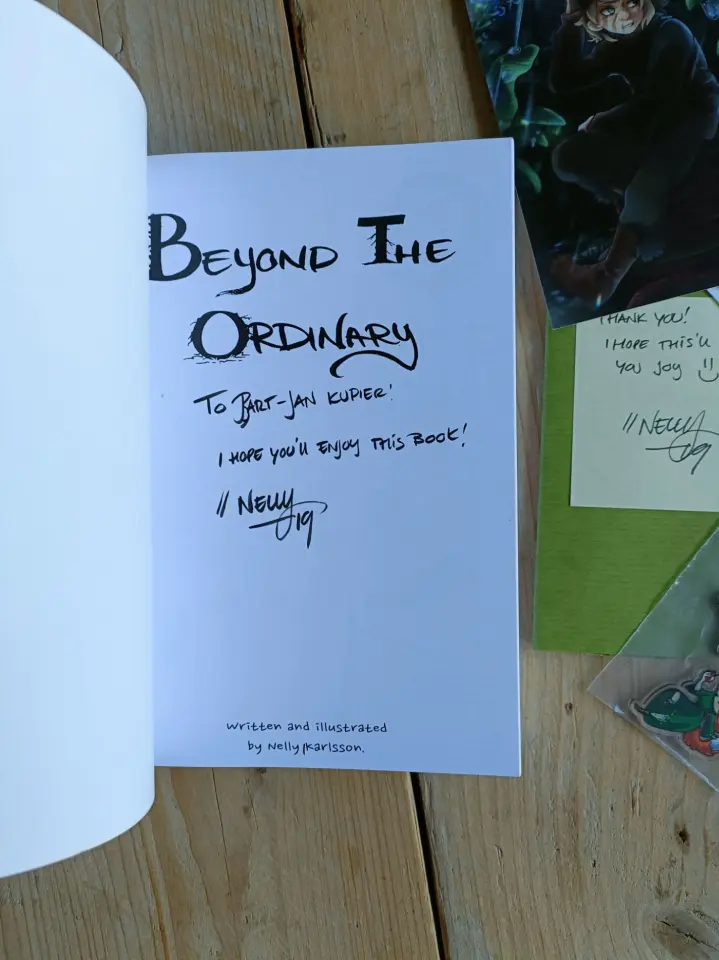 BEYOND THE
ORDINARY
TO BART-JAN KUPIER!
I HOPE YOU'LL ENJOY THIS BOOK!
// NELLY
19
written and illustrated
by Nelly Karlsson.
THANK YOU!
I HOPE THIS'LL
YOU JOY
// NELLY
09